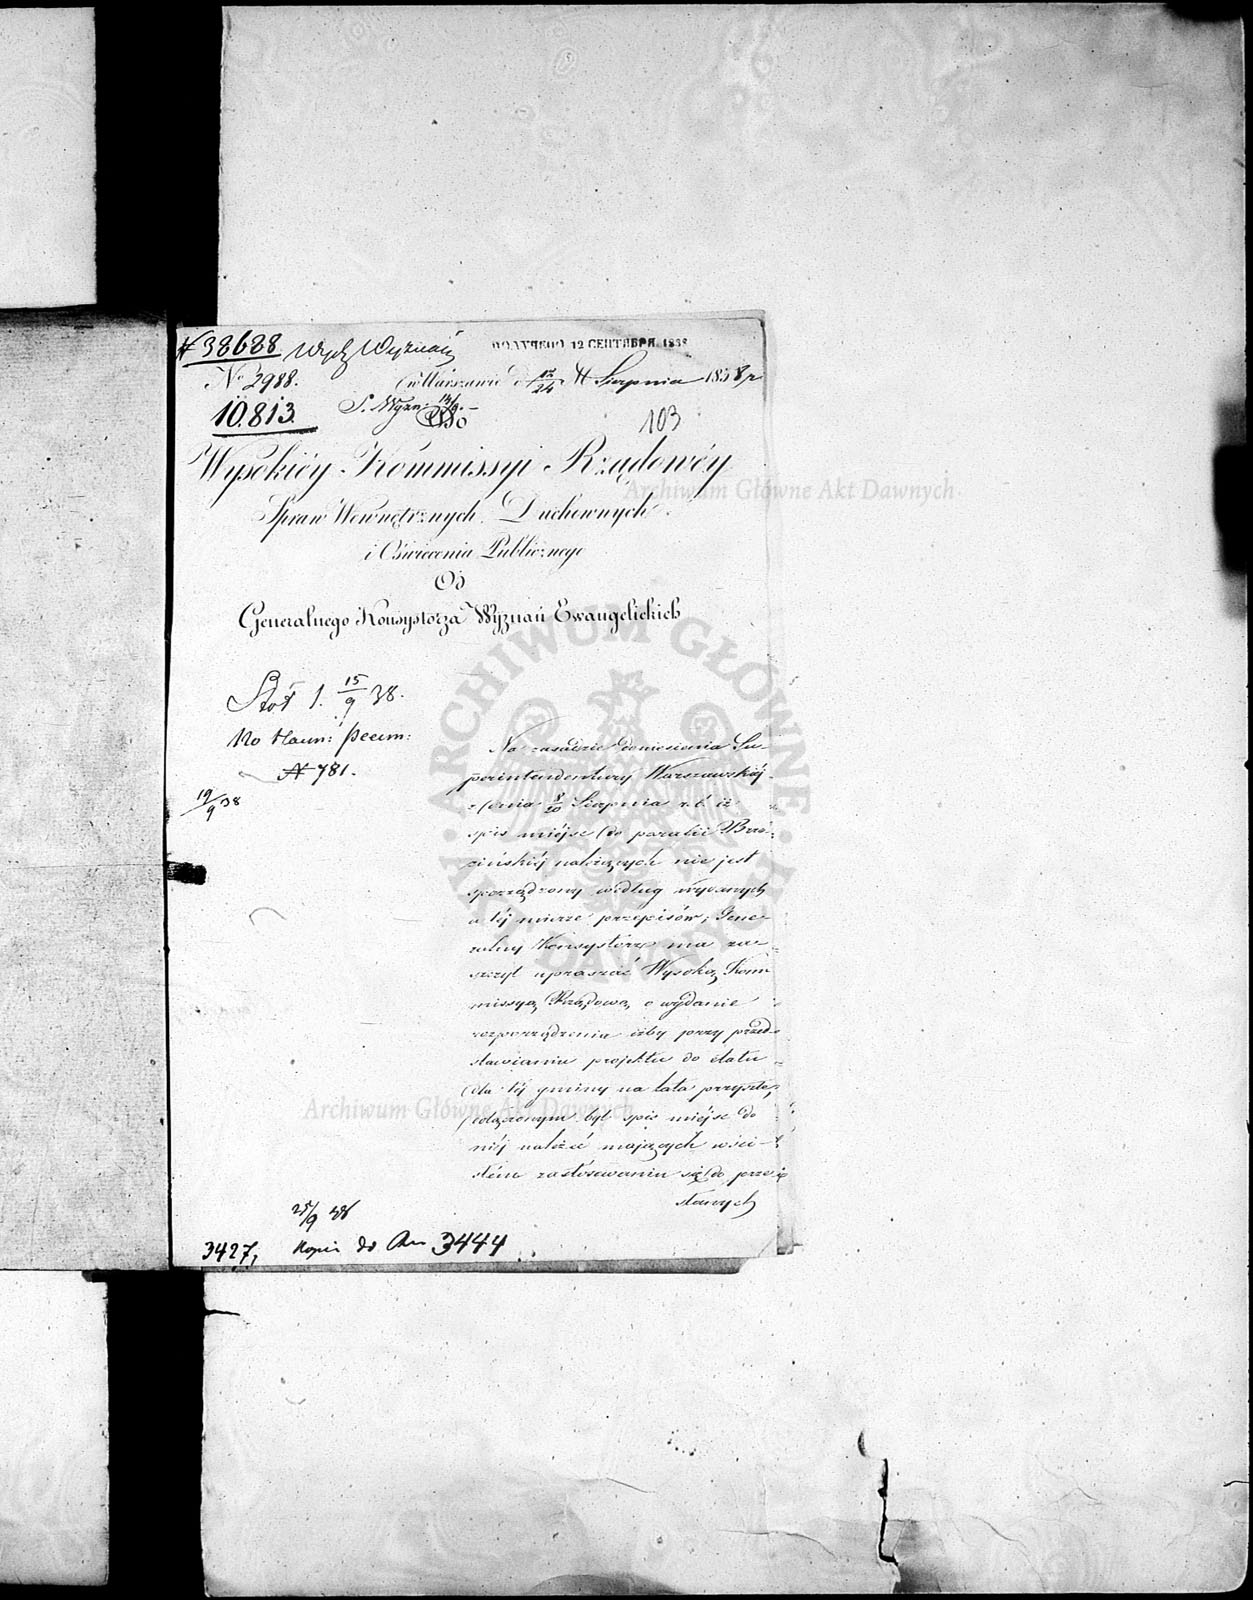 # 38688 Wydz Wyznań
ПОЛУЧЕНО 12 СЕНТЯБРЯ 1838
No 2988. w Warszawie d 12/24 Sierpnia 1838 r
10.813. S. Wyzn: 14/9.
Do
103
Wysokiéy Kommissyi Rządowéy
Spraw Wewnętrznych Duchownych
i Oświecenia Publicznego
Od
Generalnego Konsystorza Wyznań Ewangelickich
15/9 38.
No 781.
19/9 38
Na zasadzie doniesienia Su-
perintendentury Warszawskiéj
z dnia 8/20 Sierpnia r. b. iż
spis miéjsc do parafii Brze-
zińskiéj należących nie jest
sporządzony według wydanych
w téj mierze przepisów, Gene-
ralny Konsystorz ma zas-
szczyt upraszać Wysoką Kom
missyą Rządową o wydanie
rozporządzenia iżby przy przed-
stawianiu projektu do etatu
dla téj gminy na lata przyszłe,
dołączonym był spis miéjsc do
niéj należeć mających w ści-
słém zastósowaniu się do prze
słanych
25/9 38
3427, Kopia do 3444
Archiwum Główne Akt Dawnych
ARCHIWUM GŁÓWNE AKT DAWNYCH
Archiwum Główne Akt Dawnych